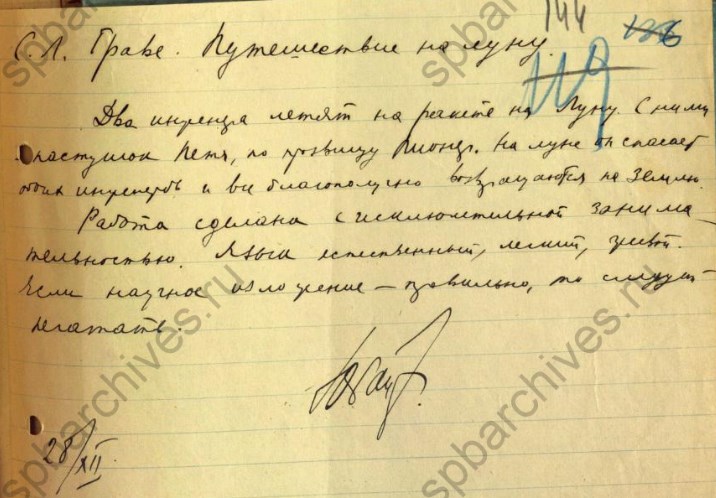 144
136
119
С. Л. Граве. Путешествие на луну.
Два инженера летят на ракете на Луну. С ними
пастушок Петя, по прозвищу Пионер. На луне он спасает
обоих инженеров и все благополучно возвращаются на Землю.
Работа сделана с исключительной занима-
тельностью. Язык естественный, легкий, живой.
Если научное изложение – правильно, то следует
печатать.
28/XII.
spbarchives.ru